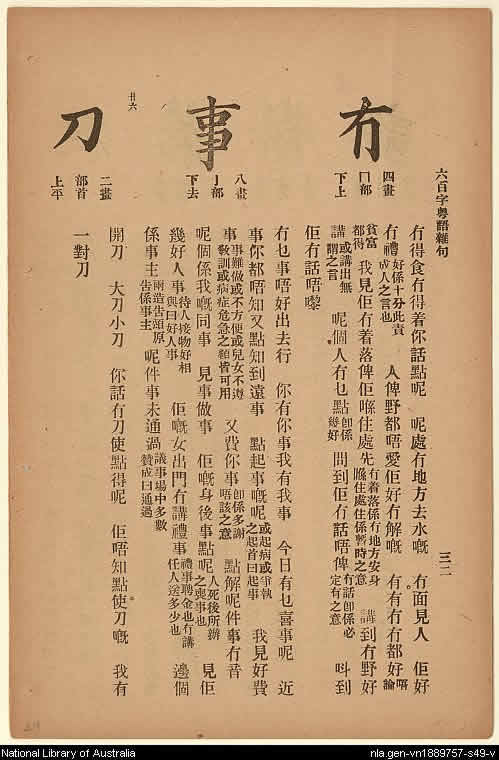 六百字粵語雜句　三二
冇
四畫
冂部
下上
冇得食冇得着你話點呢　呢處冇地方去水嘅　冇面見人　佢好
冇禮 好係十分此責成人之言也　人俾野都唔愛佢好冇解嘅　冇冇冇冇都好 唔論
貧富都得　我見佢冇着落俾佢喺住處先 冇着落係冇地方安身喺住處住係暫時之意　講到冇野好
講 或講出無謂之言　呢個人冇乜點 卽係幾好　問到佢冇話唔俾 冇話卽係必定有之意　呌到
佢冇話唔嚟
事
八畫
亅部
下去
冇乜事唔好出去行　你有你事我有我事　今日有乜喜事呢　近
事你都唔知又點知到遠事　點起事嘅呢 或起病或爭執之起首曰起事　我見好費
事 事難做或不方便或兒女不遵敎訓或病症危急之類皆可用　又費你事 卽係多謝唔該之意　點解呢件事冇音
呢個係我嘅同事　見事做事　佢嘅身後事點呢 人死後所辦之喪事也　見佢
幾好人事 待人接物好相與曰好人事　佢嘅女出門有講禮事 禮事聘金也冇講任人送多少也　邊個
係事主 兩造吿原吿係事主　呢件事未通過 議事場中多數贊成曰通過
廿六
刀
二畫
部首
上平
開刀　大刀小刀　你話冇刀使點得呢　佢唔知點使刀嘅　我有
一對刀
National Library of Australia
nla.gen-vn1889757-s49-v